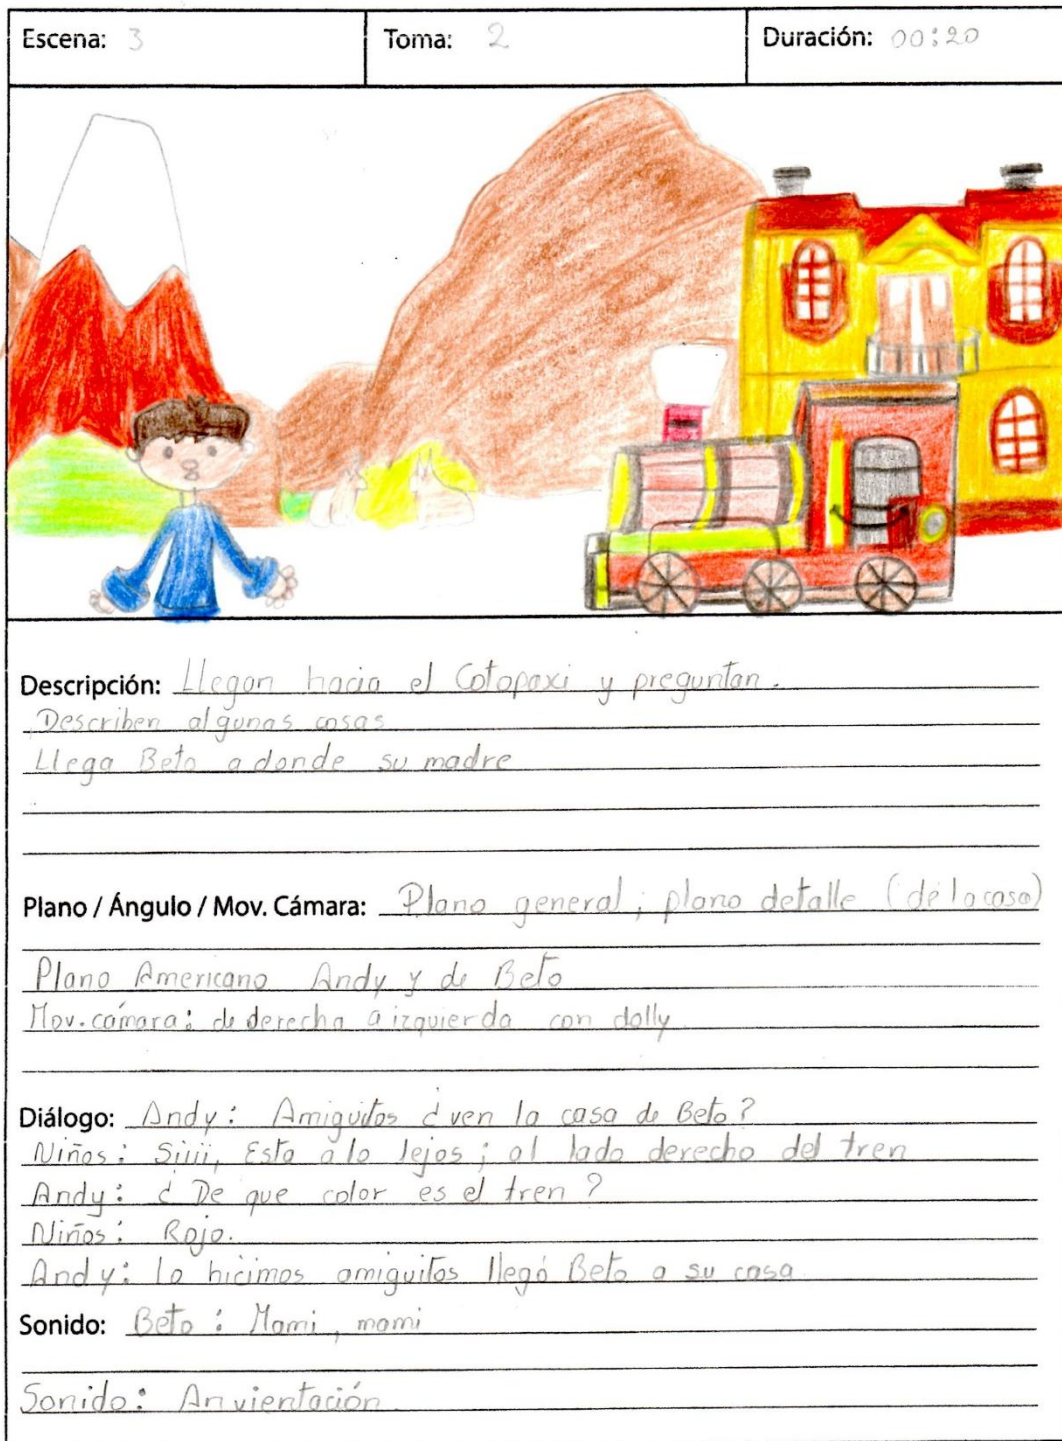 Escena: 3 Toma: 2 Duración: 00:20
Descripción: Llegan hacia el Cotopaxi y preguntan.
Describen algunas cosas
Llega Beto a donde su madre
Plano / Ángulo / Mov. Cámara: Plano general; plano detalle (de la casa)
Plano Americano Andy y de Beto
Mov. cámara: de derecha a izquierda con dolly
Diálogo: Andy: Amiguitos ¿ven la casa de Beto?
Niños: Siiii, Esta a lo lejos; al lado derecho del tren
Andy: ¿De que color es el tren?
Niños: Rojo.
Andy: Lo hicimos amiguitos llegó Beto a su casa
Sonido: Beto: Mami, mami
Sonido: Anvientación